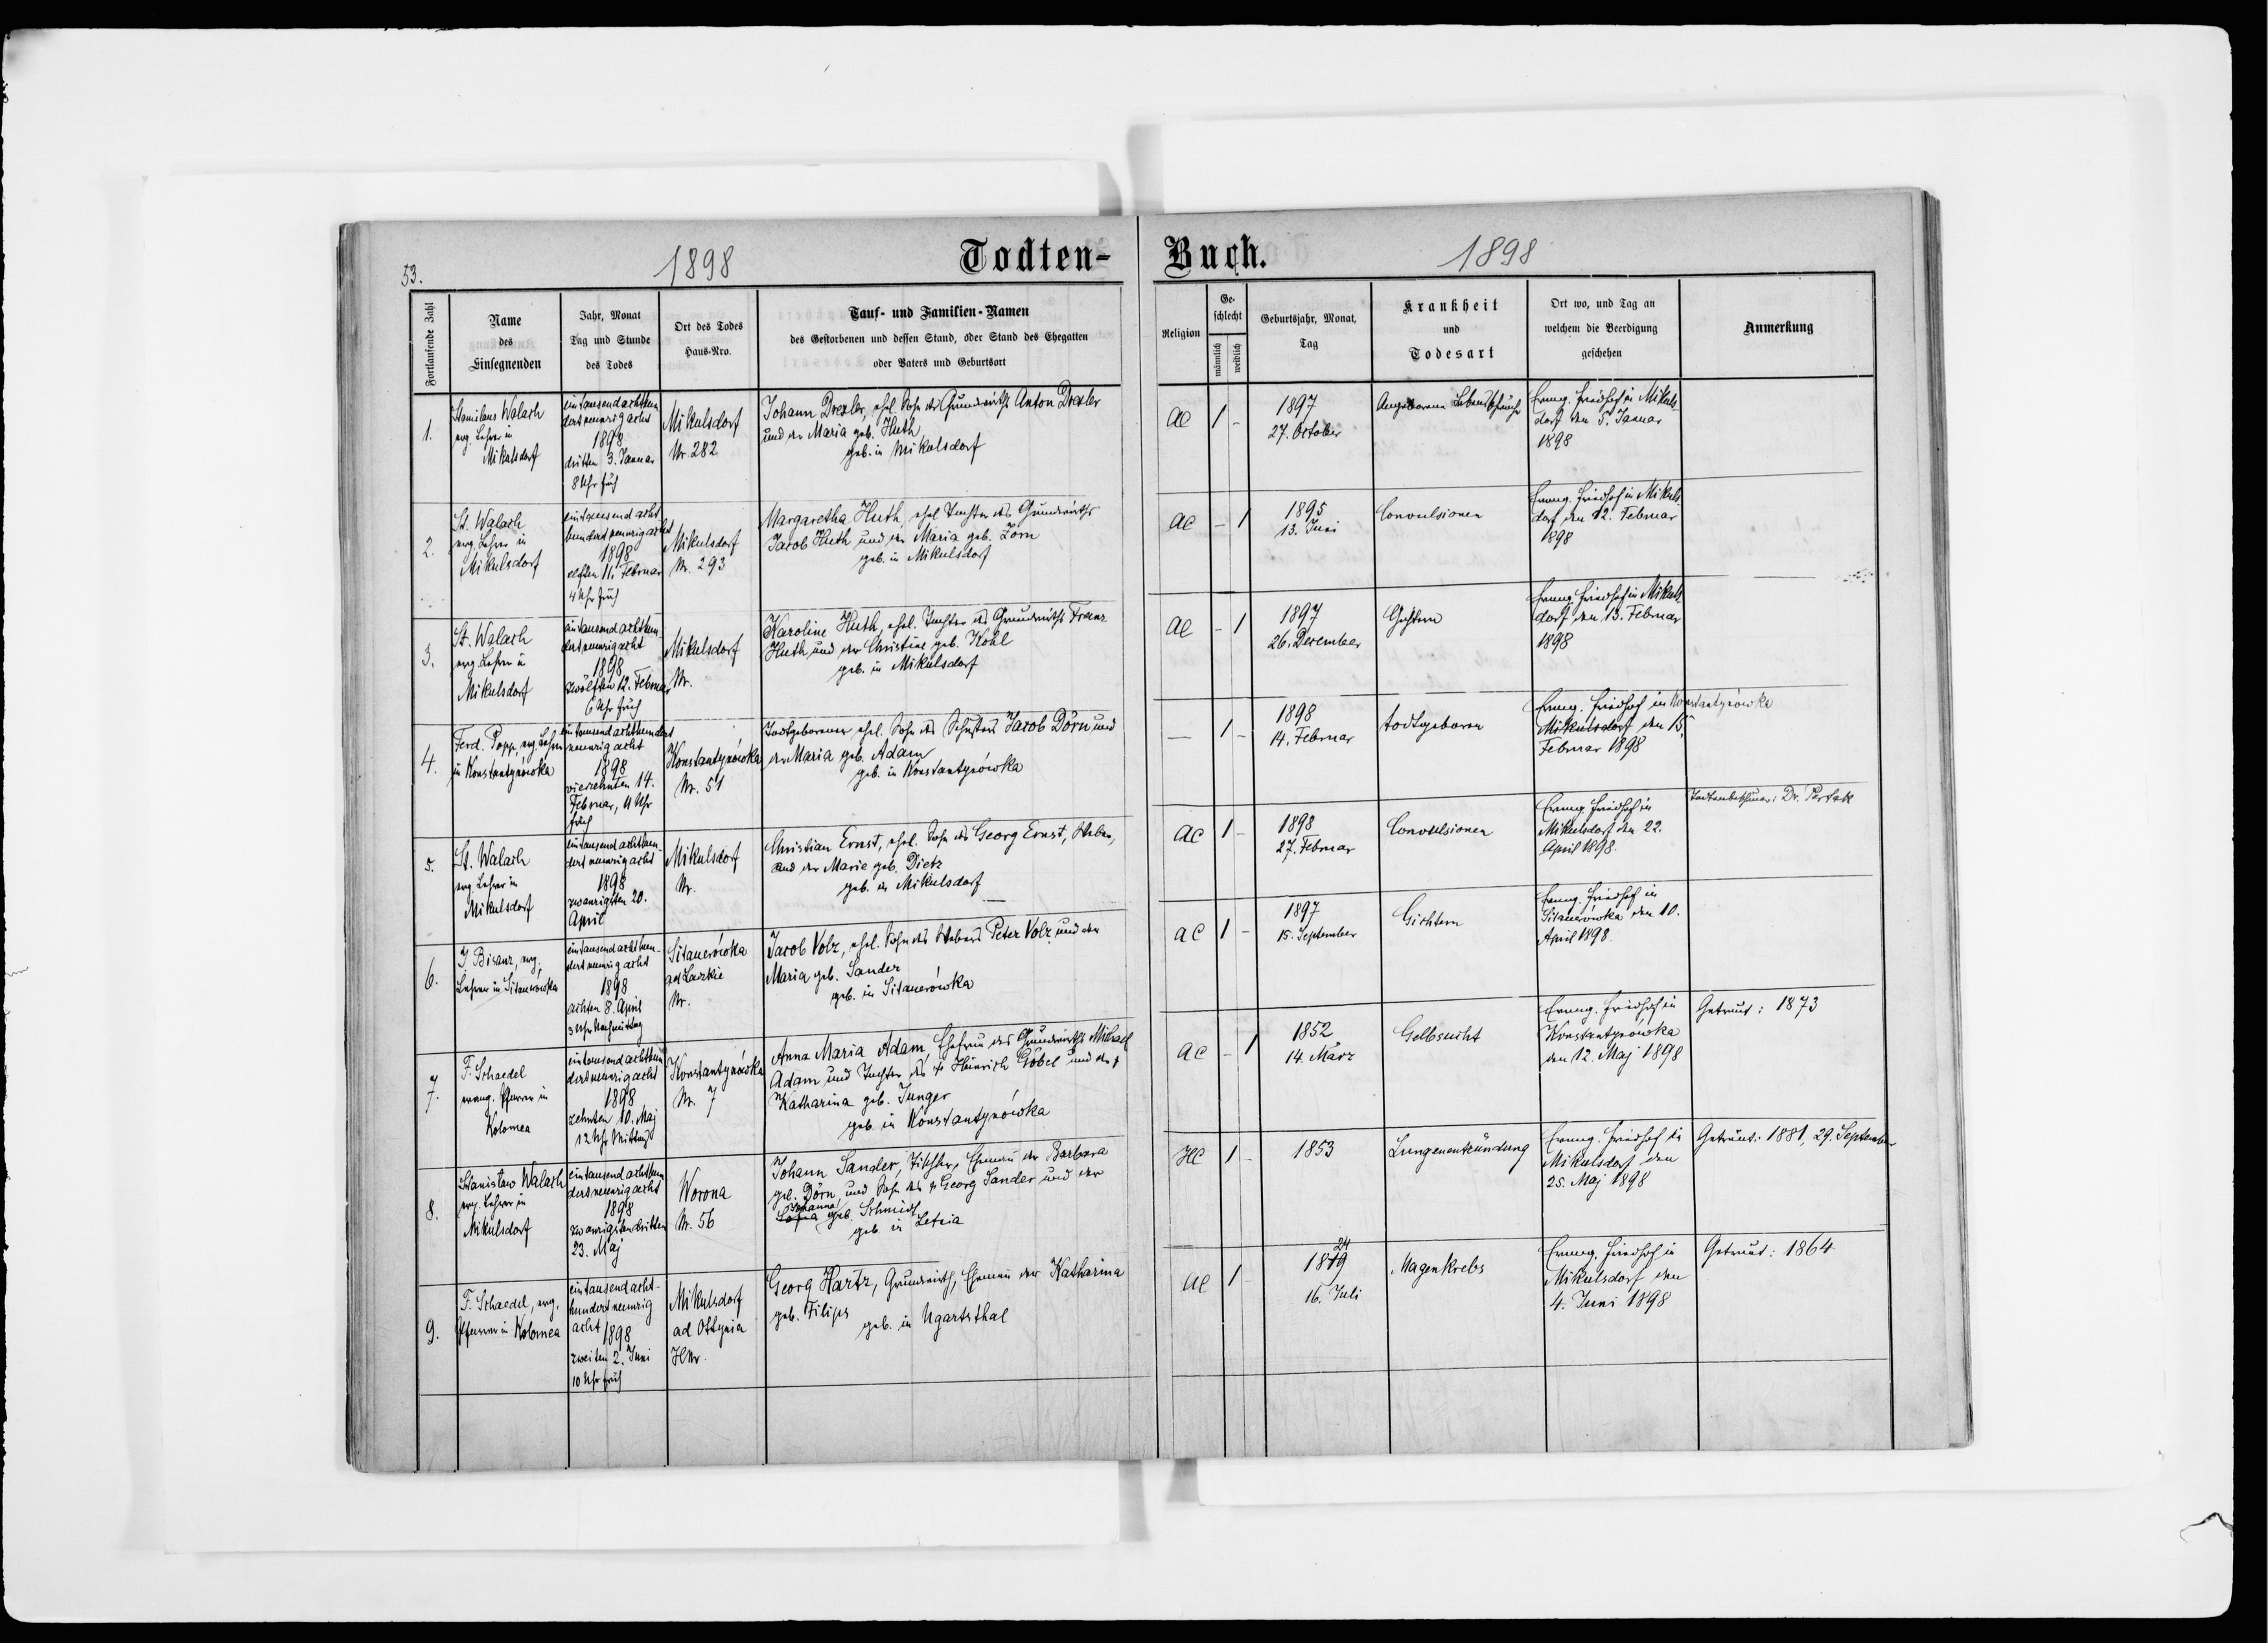 53.
1898
Todten-
Buch.
1898
Fortlaufende Zahl
Name
des
Einsegnenden
Jahr, Monat
Tag und Stunde
des Todes
Ort des Todes
Haus-Nro.
Tauf- und Familien-Namen
des Gestorbenen und dessen Stand, oder Stand des Ehegatten
oder Vaters und Geburtsort
Religion
Ge-
schlecht
männlich
weiblich
Geburtsjahr, Monat,
Tag
Krankheit
und
Todesart
Ort wo, und Tag an
welchem die Beerdigung
geschehen
Anmerkung
1.
Stanilaus Walach
evg. Lehrer in
Mikulsdorf
eintausendachthun
dertneunzigacht
1898
dritten 3. Januar
8 Uhr früh
Mikulsdorf
Nr. 282
Johann Drexler, ehel. Sohn des Grundwirths Anton Drexler
und der Maria geb. Huth
geb. in Mikulsdorf
AC
1 -
1897
27. October
Angeborene Lebensschwäche
Evang. Friedhof in Mikuls-
dorf den 5. Januar
1898
2.
St. Walach
evg. Lehrer in
Mikulsdorf
eintausend acht
hundertneunzigacht
1898
elften 11. Februar
4 Uhr früh
Mikulsdorf
Nr. 293
Margaretha Huth, ehel. Tochter des Grundwirths
Jacob Huth und der Maria geb. Zorn
geb. in Mikulsdorf
AC
- 1
1895
13. Juni
Convulsionen
Evang. Friedhof in Mikuls-
dorf den 12. Februar
1898
3.
St. Walach
evg. Lehrer in
Mikulsdorf
eintausendachthun-
dertneunzigacht
1898
zwölften 12. Februar
6 Uhr früh
Mikulsdorf
Nr.
Karoline Huth, ehel. Tochter des Grundwirths Franz
Huth und der Christine geb. Kohl
geb. in Mikulsdorf
AC
- 1
1897
26. December
Gichtern
Evang. Friedhof in Mikuls-
dorf den 13. Februar
1898
4.
Ferd. Popp, evg. Lehrer
in Konstantynówka
eintausendachthundert
neunzigacht
1898
vierzehnten 14.
Februar, 4 Uhr
früh
Konstantynówka
Nr. 51
Todtgeborener ehel. Sohn des Schusters Jacob Dörn und
der Maria geb. Adam
geb. in Konstantynówka
—
1 -
1898
14. Februar
todtgeboren
Evang. Friedhof in Konstantynówka
Mikulsdorf den 15.
Februar 1898
5.
St. Walach
evg. Lehrer in
Mikulsdorf
eintausendachthun-
dertneunzigacht
1898
zwanzigsten 20.
April
Mikulsdorf
Nr.
Christian Ernst, ehel. Sohn des Georg Ernst, Weber,
und der Marie geb. Dietz
geb. in Mikulsdorf
AC
1 -
1898
27. Februar
Convulsionen
Evang. Friedhof in
Mikulsdorf den 22.
April 1898.
Todtenbeschauer: Dr.
6.
J Bisanz, evg.
Lehrer in Sitauerówka
eintausendachthun-
dertneunzigacht
1898
achten 8. April
3 Uhr Nachmittag
Sitauerówka
ad Laskie
Nr.
Jacob Volz, ehel. Sohn des Webers Peter Volz und der
Maria geb. Sander
geb. in Sitauerówka
AC
1 -
1897
15. September
Gichtern
Evang. Friedhof in
Sitauerówka den 10.
April 1898.
7.
F. Schaedel
evang. Pfarrer in
Kolomea
eintausendachthun
dertneunzigacht
1898
zehnten 10. Maj
12 Uhr Mittags
Konstantynówka
Nr. 7
Anna Maria Adam, Ehefrau des Grundwirths Michael
Adam und Tochter des † Heinrich Göbel und der †
Katharina geb. Junger
geb. in Konstantynówka
AC
- 1
1852
14. März
Gelbsucht
Evang. Friedhof in
Konstantynówka
den 12. Maj 1898
Getraut: 1873
8.
Stanisław Walach
evg. Lehrer in
Mikulsdorf
eintausendachthun
dertneunzigacht
1898
zwanzigstendritten
23. Maj
Worona
Nr. 56
Johann Sander, Tischler, Ehemann der Barbara
geb. Dörn, und Sohn des † Georg Sander und der
Johanna
Sofia geb. Schmidt
geb. in
HC
1 -
1853
Lungenentzündung
Evang. Friedhof in
Mikulsdorf den
25. Maj 1898
Getraut: 1881, 29. September
9.
F. Schaedel, evg.
Pfarrer in Kolomea
eintausendacht-
hundertneunzig
acht 1898
zweiten 2. Juni
10 Uhr früh
Mikulsdorf
ad Ottynia
HNr.
Georg Hartz, Grundwirth, Ehemann der Katharina
geb. Filips
geb. in Ugartsthal
AC
1 -
24
1819
16. Juli
Magenkrebs
Evang. Friedhof in
Mikulsdorf den
4. Juni 1898
Getraut: 1864